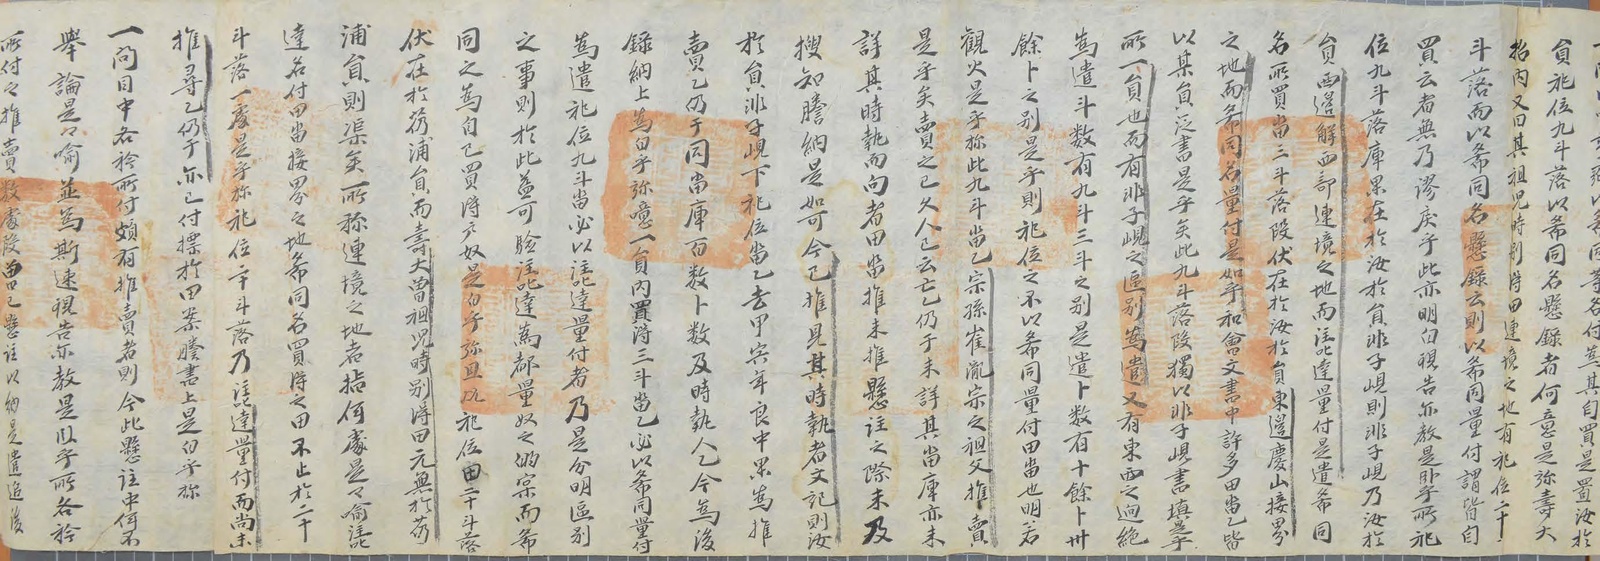 員祀位九斗落以希同名懸錄者何意是旀壽大
抬內又曰其祖児時別得田連境之地有祀位二十
斗落而以希同名懸錄云則以希同量付謂皆自
買云者無乃謬戾乎此亦明白現告亦教是臥乎所祀
位九斗落庫果在於汝於員非子峴則非子峴乃汝於
員西邊解西部連境之地而注訖達量付是遣希同
名所買畓三斗落段伏在於汝於員東邊慶山接界
之地而希同名量付是如乎和會文書中許多田畓乙皆
以某員泛書是乎矣此九斗落段獨以非子峴書塡是乎
所一員也而有非子峴之區別爲遣又有東西之逈絶
爲遣斗數有九斗三斗之別是遣卜數有十餘卜卅
餘卜之別是乎則祀位之不以希同量付田畓也明若
觀火是乎旀此九斗畓乙宗孫崔胤宗之祖父推賣
是乎矣賣之已久人已云亡乙仍于未詳其畓庫亦未
詳其時執而向者田畓推來推懸注之際未及
搜知謄納是如可今已推見其時執者文記則汝
於員非子峴下祀位畓乙去甲寅年良中果爲推
賣乙仍于同畓庫員數卜數及時執人乙今爲後
錄納上爲白乎旀噫一員內置得三斗畓乙必以希同量付
爲遣祀位九斗畓必以注訖達量付者乃是分明區別
之事則於此益可驗注訖達爲都量奴之的宗而希
同之爲自己買得戶奴是白乎旀且凡祀位田二十斗落
伏在於琴浦員而壽大曾祖児時別得田元無於琴
浦員則渠矣所称連境之地者指何處是喩注訖
達名付田畓接界之地希同名買得之田不止於二十
斗落一處是乎旀祀位二十斗落乃注訖達量付而尙未
推尋乙仍于亦已付標於田案謄書上是白乎旀
一問目中各衿所付頗有推賣者則今此懸注中何不
擧論是喩並爲斯速現告亦教是臥乎所各衿
所付之推賣數處段畓已懸注以納是遣追後